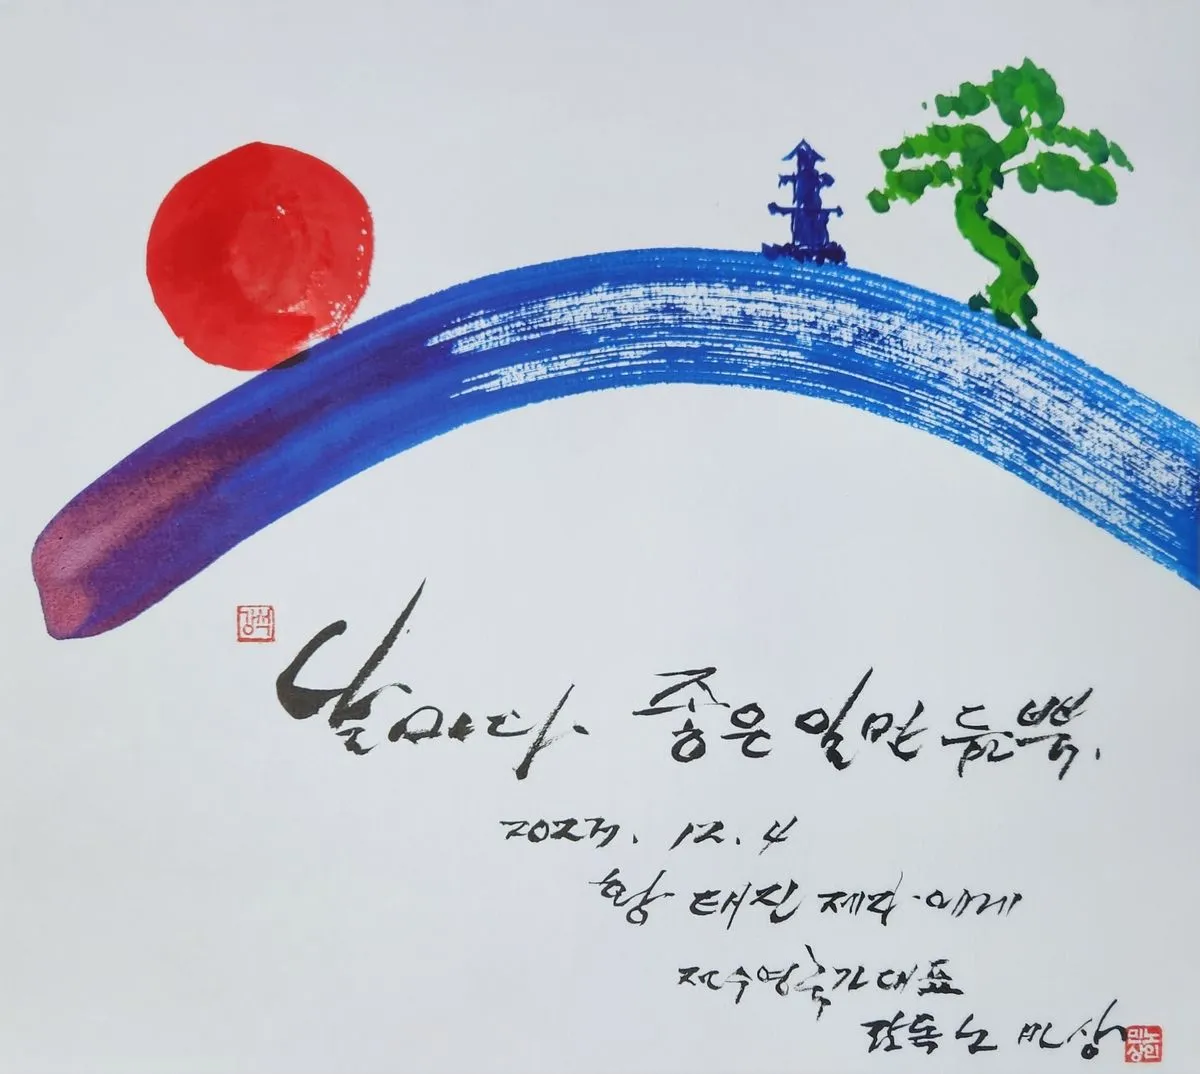 날마다 좋은 일만 듬뿍.
2023. 12. 4
황 태진 제자에게
전 수영국가대표
감독 노 민상
민노
상인